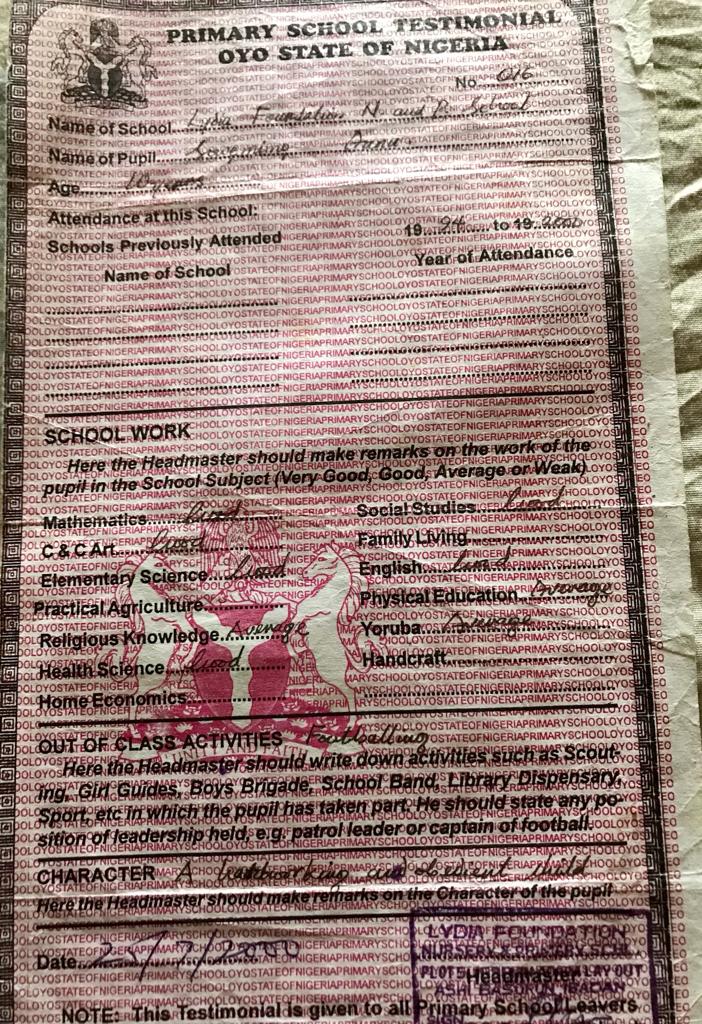 PRIMARY SCHOOL TESTIMONIAL
OYO STATE OF NIGERIA
No. 016
Name of School Lydia Foundation N. and P. School
Name of Pupil Anna
Age 10 years
Attendance at this School: 19 to 19 2000
Schools Previously Attended
Name of School Year of Attendance
SCHOOL WORK
Here the Headmaster should make remarks on the work of the
pupil in the School Subject (Very Good, Good, Average or Weak)
Mathematics Good Social Studies Good
C & C Art Good Family Living
Elementary Science Good English Good
Practical Agriculture Physical Education Average
Religious Knowledge Average Yoruba Average
Health Science Good Handcraft
Home Economics
OUT OF CLASS ACTIVITIES Footballing
Here the Headmaster should write down activities such as Scout-
ing, Girl Guides, Boys Brigade, School Band, Library Dispensary,
Sport, etc in which the pupil has taken part. He should state any po-
sition of leadership held, e.g. patrol leader or captain of football
CHARACTER A hardworking and obedient child
Here the Headmaster should make remarks on the Character of the pupil
LYDIA FOUNDATION
NURSERY & PRIMARY SCHL
Date 25/7/2000
PLOT 5 LAY OUT
Headmaster
ASHI BASORUN IBADAN
SIGN
NOTE: This Testimonial is given to all Primary School Leavers